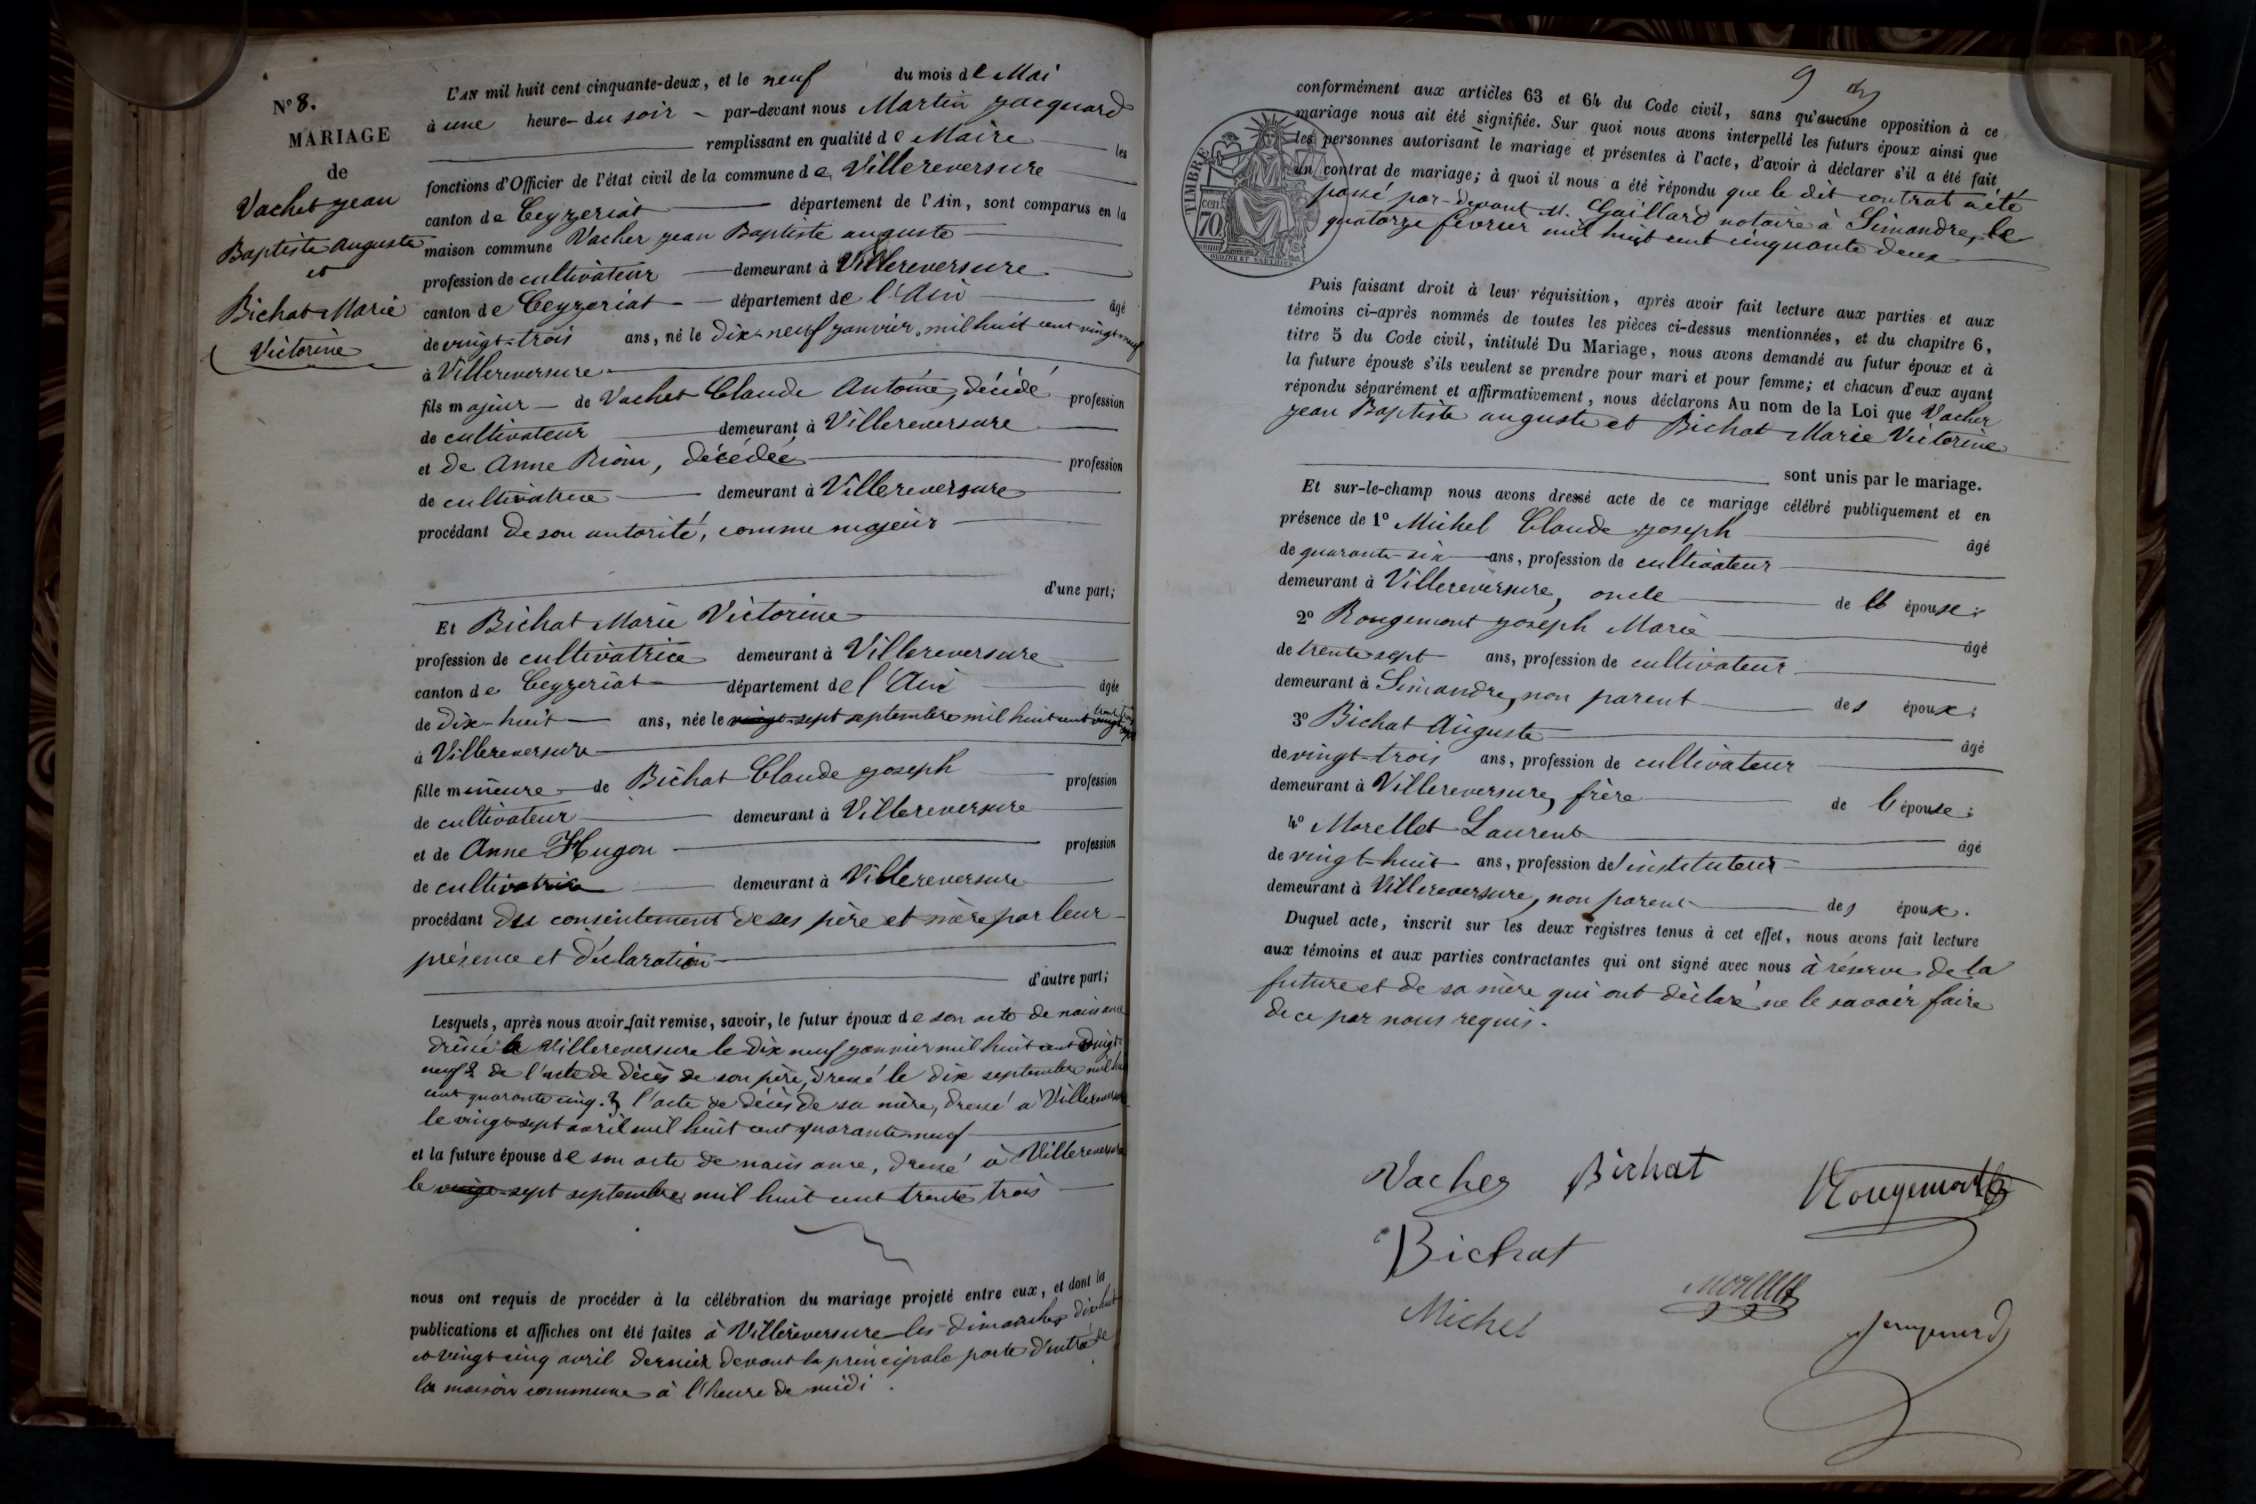 N° 8.
MARIAGE
de
Vacher jean
Baptiste auguste
et
Bichat Marie
Victorine
L'AN mil huit cent cinquante-deux, et le neuf du mois de Mai
à une heure du soir par-devant nous Martin jacquard
remplissant en qualité de Maire les
fonctions d'Officier de l'état civil de la commune de Villereversure
canton de Ceyzeriat département de l'Ain, sont comparus en la
maison commune Vacher jean Baptiste auguste
profession de cultivateur demeurant à Villereversure
canton de Ceyzeriat département de l'Ain âgé
de vingt-trois ans, né le dix-neuf janvier mil huit cent vingt-neuf
à Villereversure
fils majeur de Vacher Claude Antoine, décédé profession
de cultivateur demeurant à Villereversure
et de Anne décédée profession
de cultivatrice demeurant à Villereversure
procédant de son autorité, comme majeur
d'une part;
Et Bichat Marie Victorine
profession de cultivatrice demeurant à Villereversure
canton de Ceyzeriat département de l'Ain âgée
de dix-huit ans, née le vingt-sept septembre mil huit cent trente trois
à Villereversure
fille mineure de Bichat Claude joseph profession
de cultivateur demeurant à Villereversure
et de Anne Hugon profession
de cultivatrice demeurant à Villereversure
procédant du consentement de ses père et mère par leur
présence et déclaration
d'autre part;
Lesquels, après nous avoir fait remise, savoir, le futur époux de son acte de naissance
dressé à Villereversure le dix neuf janvier mil huit cent vingt-
neuf 2 de l'acte de décès de son père, dressé le dix septembre mil huit
cent quarante cinq. 3 l'acte de décès de sa mère, dressé à Villereversure
le vingt-sept avril mil huit cent quarante neuf
et la future épouse de son acte de naissance, dressé à Villereversure
le vingt-sept septembre mil huit cent trente trois
nous ont requis de procéder à la célébration du mariage projeté entre eux, et dont la
publications et affiches ont été faites à Villereversure les dimanches dix-huit
et vingt cinq avril dernier devant la principale porte d'entrée de
la maison commune à l'heure de midi.
9
TIMBRE
70
conformément aux articles 63 et 64 du Code civil, sans qu'aucune opposition à ce
mariage nous ait été signifiée. Sur quoi nous avons interpellé les futurs époux ainsi que
les personnes autorisant le mariage et présentes à l'acte, d'avoir à déclarer s'il a été fait
un contrat de mariage; à quoi il nous a été répondu que le dit contrat a été
passé par-devant M. Gaillard notaire à Simandre, le
quatorze février mil huit cent cinquante deux
Puis faisant droit à leur réquisition, après avoir fait lecture aux parties et aux
témoins ci-après nommés de toutes les pièces ci-dessus mentionnées, et du chapitre 6,
titre 5 du Code civil, intitulé Du Mariage, nous avons demandé au futur époux et à
la future épouse s'ils veulent se prendre pour mari et pour femme; et chacun d'eux ayant
répondu séparément et affirmativement, nous déclarons Au nom de la Loi que Vacher
jean Baptiste auguste et Bichat Marie Victorine
sont unis par le mariage.
Et sur-le-champ nous avons dressé acte de ce mariage célébré publiquement et en
présence de 1° Michel Claude joseph âgé
de quarante-six ans, profession de cultivateur
demeurant à Villereversure, oncle de l' épouse;
2° Rougemont joseph Marie âgé
de trente sept ans, profession de cultivateur
demeurant à Simandre, non parent des époux;
3° Bichat Auguste âgé
de vingt-trois ans, profession de cultivateur
demeurant à Villereversure, frère de l'épouse;
4° Morellet Laurent âgé
de vingt-huit ans, profession d'instituteur
demeurant à Villereversure, non parent des époux.
Duquel acte, inscrit sur les deux registres tenus à cet effet, nous avons fait lecture
aux témoins et aux parties contractantes qui ont signé avec nous à réserve de la
future et de sa mère qui ont déclaré ne le savoir faire
de ce par nous requis.
Vacher Bichat Rougemont
Bichat
Michel Morellet
Jacquard